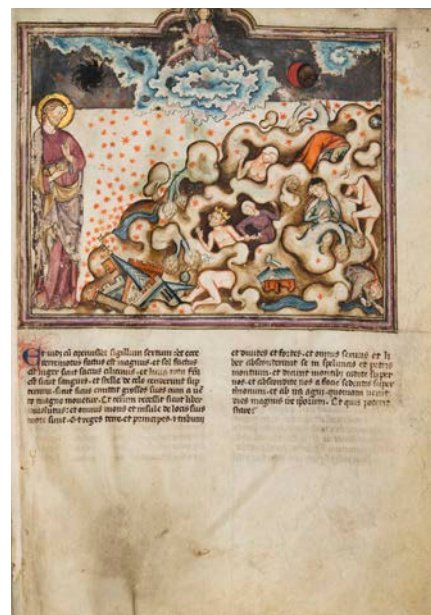 Et vidi cu aperuisset sigillum sextum: et ecce
terremotus factus est magnus. et sol factus
est niger sicut saccus cilicinus. et luna tota
est sicut sanguis. et stelle de celo ceciderunt sup
terram. sicut ficus emittit grossos suos cum a ve
to magno movetur. Et celum recessit sicut liber
involutus: et omnis mons et insule de locis suis
mote sunt. Et reges terre. et principes. et tribuni
et divites et fortes. et omnis servus et li
ber absconderunt se in speluncis et petris
montium. et dicunt montibus cadite super
nos. et abscondite nos a facie sedentis super
thronum. et ab ira agni. quoniam venit
dies magnus ire ipsorum. Et quis poterit
stare: